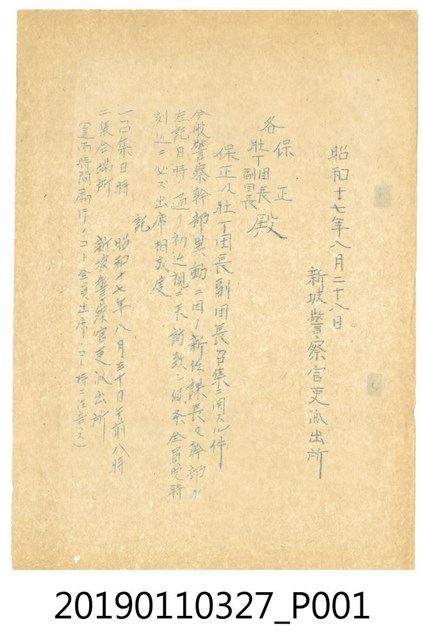 昭和十七年八月二十八日
新坡警察官吏派出所
各保正
壮丁団長
副団長
殿
保正及壮丁団長副団長召集ニ関スル件
今般警察幹部異動ニ因リ新任課長及幹部ガ
左記日時ノ通リ初巡視
致シ候条全員定時
刻ニ必ズ出席相成度
記
一、召集日時 昭和十七年八月三十日午前八時
二、集合場所 新坡警察官吏派出所
全員出席ノコト特ニ注意
20190110327_P001